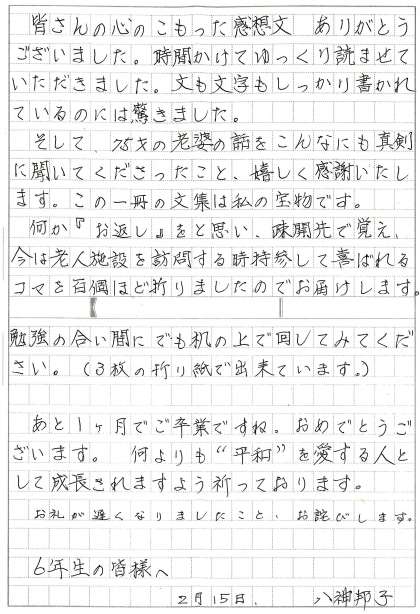 皆さんの心のこもった感想文　ありがとう
ございました。時間かけてゆっくり読ませて
いただきました。文も文字もしっかり書かれ
ているのには驚きました。
そして、75才の老婆の話をこんなにも真剣
に聞いてくださったこと、嬉しく感謝いたし
ます。この一冊の文集は私の宝物です。
何か『お返し』をと思い、疎開先で覚え、
今は老人施設を訪問する時持参して喜ばれる
コマを百個ほど折りましたのでお届けします。
勉強の合い間にでも机の上で回してみてくだ
さい。（3枚の折り紙で出来ています。）
あと1ヶ月でご卒業ですね。おめでとうご
ざいます。　何よりも“平和”を愛する人と
して成長されますよう祈っております。
お礼が遅くなりましたこと、お詫びします。
6年生の皆様へ
2月15日．　八神邦子